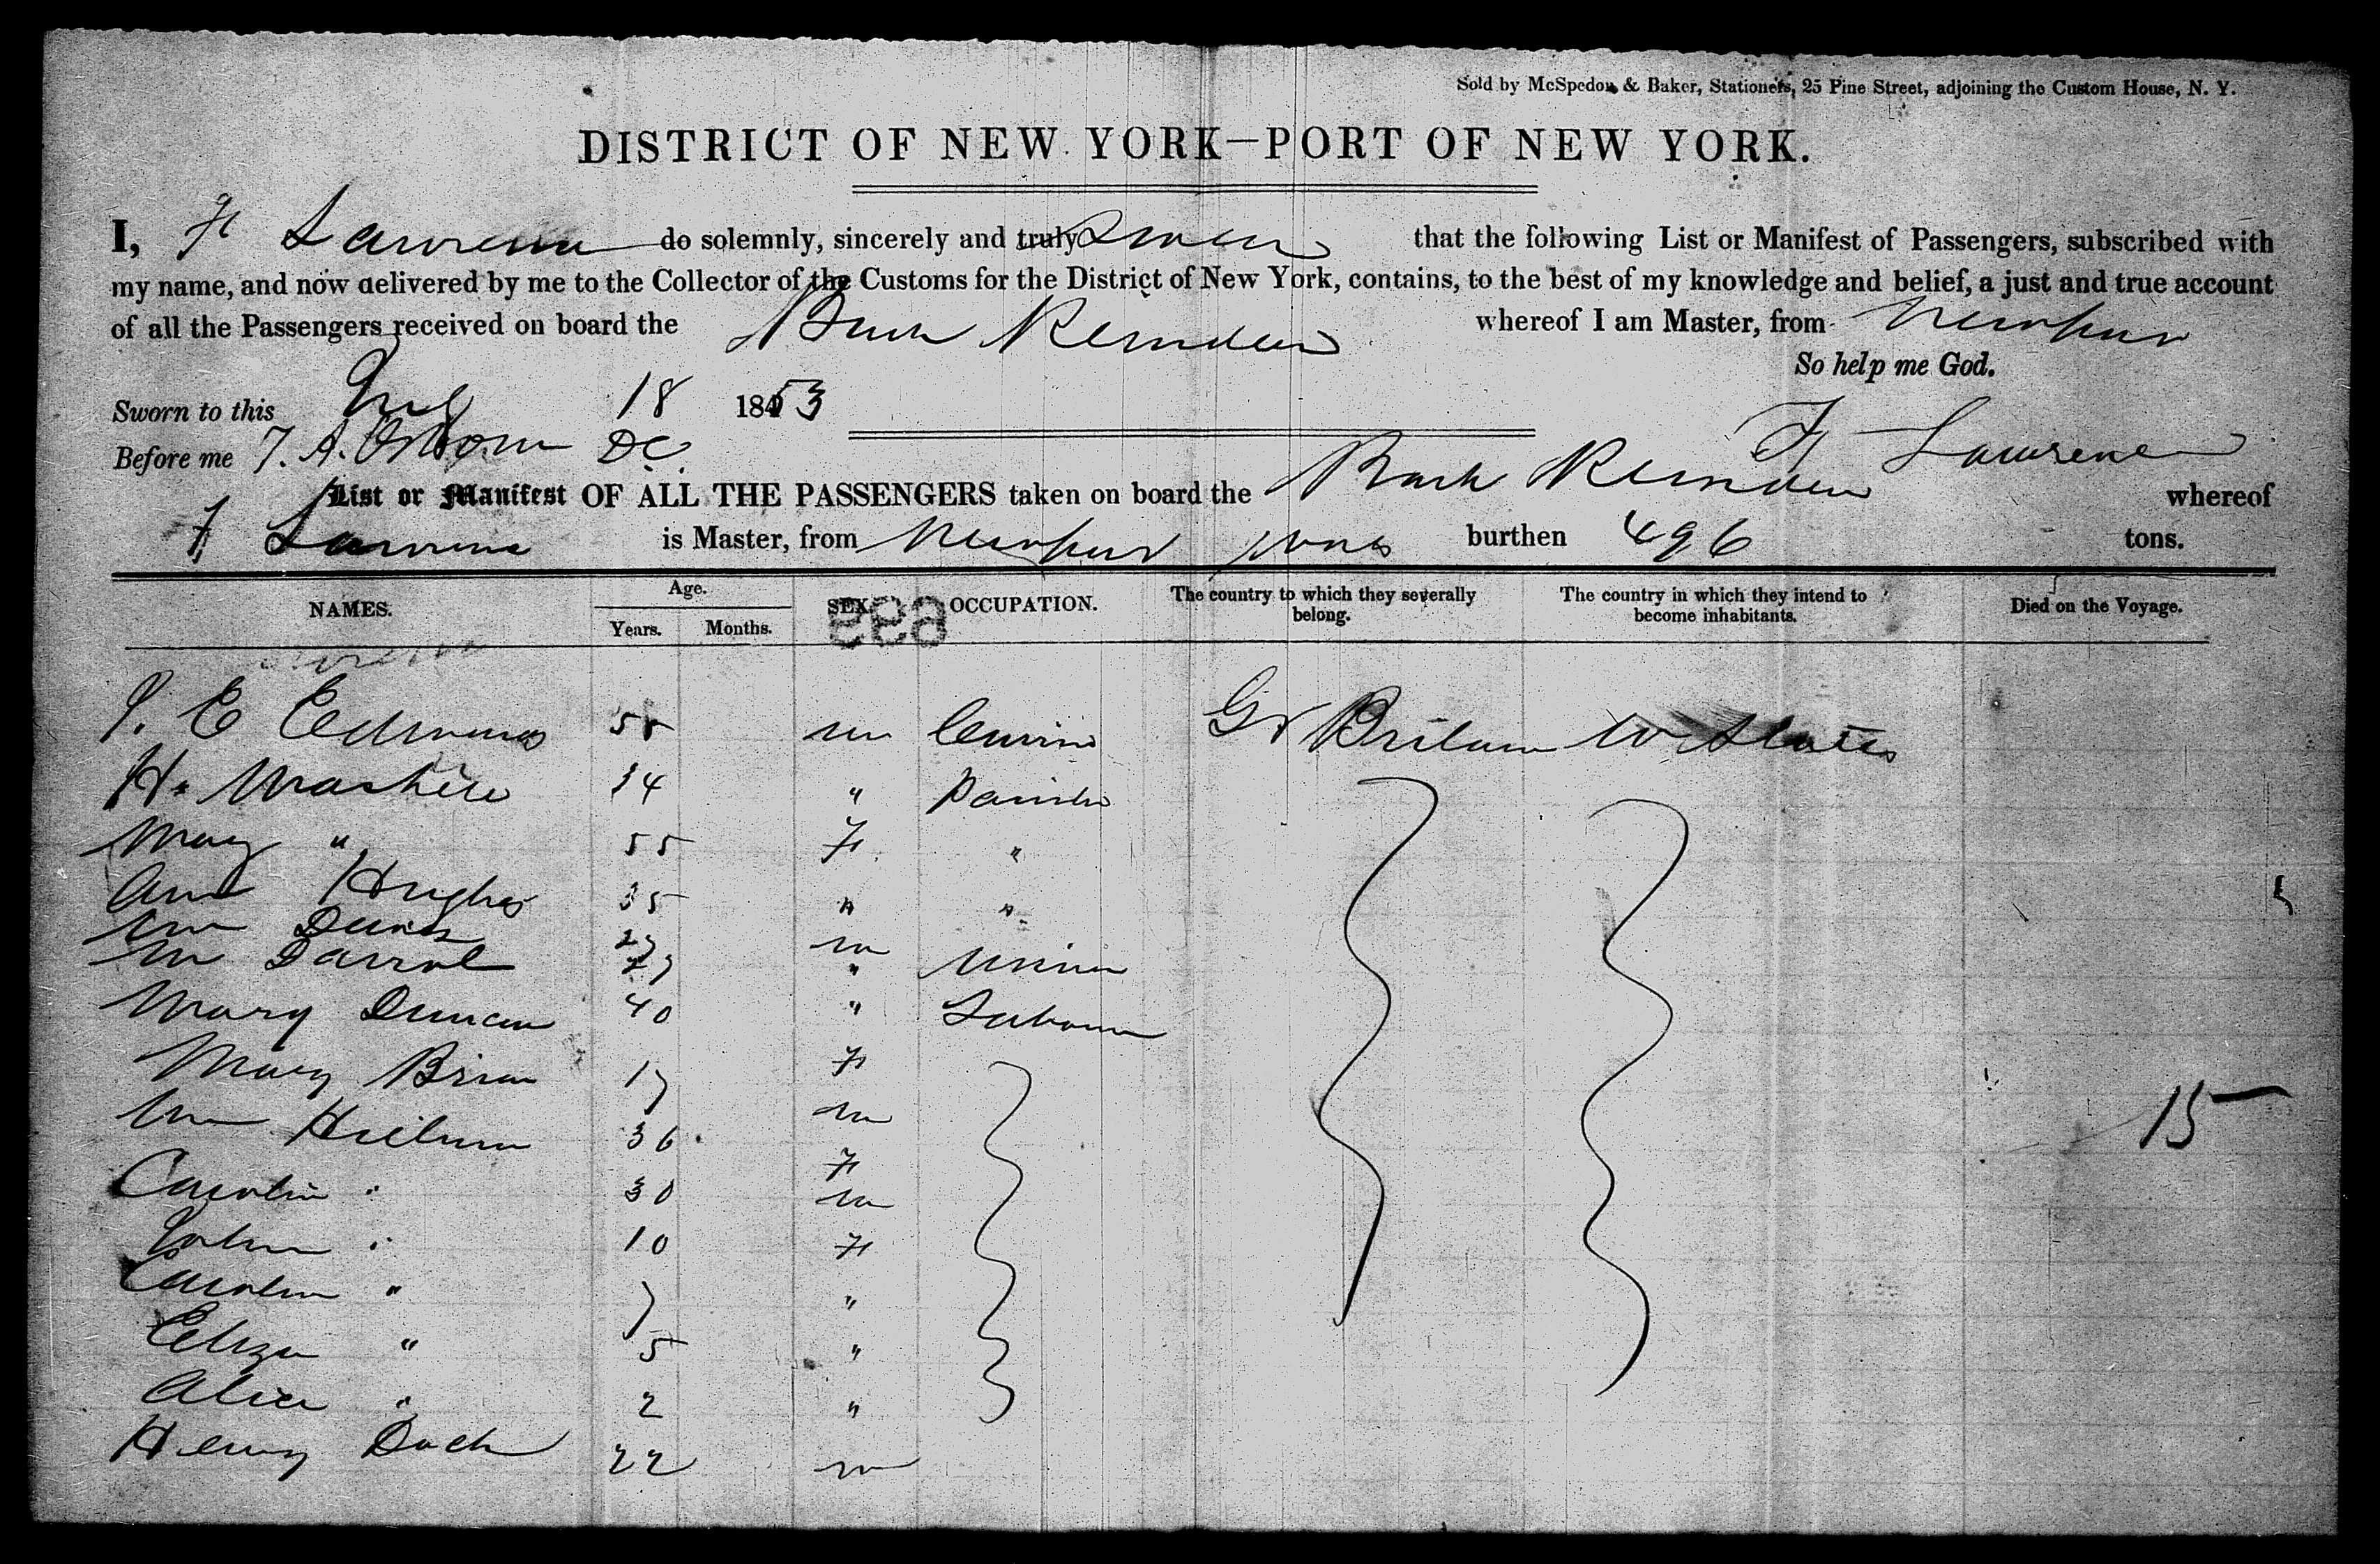 Sold by McSpedon & Baker, Stationers, 25 Pine Street, adjoining the Custom House, N. Y.
DISTRICT OF NEW YORK—PORT OF NEW YORK.
I, F Lawrence do solemnly, sincerely and truly Swear that the following List or Manifest of Passengers, subscribed with
my name, and now delivered by me to the Collector of the Customs for the District of New York, contains, to the best of my knowledge and belief, a just and true account
of all the Passengers received on board the Bark whereof I am Master, from Newport
So help me God.
Sworn to this 18 1853
Before me DC
F Lawrence
List or Manifest OF ALL THE PASSENGERS taken on board the Bark whereof
F Lawrence is Master, from Newport burthen 496 tons.
NAMES. Age. Years. Months. SEX. OCCUPATION. The country to which they severally belong. The country in which they intend to become inhabitants. Died on the Voyage.
E Edmunds m Gt Britain U States
H. 34 "
Mary " 55 F. "
Ann Hughes 35 " "
Wm Davis 27 m
Wm 27 " Miner
Mary Duncan 40 " Labourer
Mary 17 F
Wm 36 m
Caroline " 30 F
John " 10 m
Caroline " 7 F
Eliza " 5 "
Alice " 2 "
Henry 22 m
15